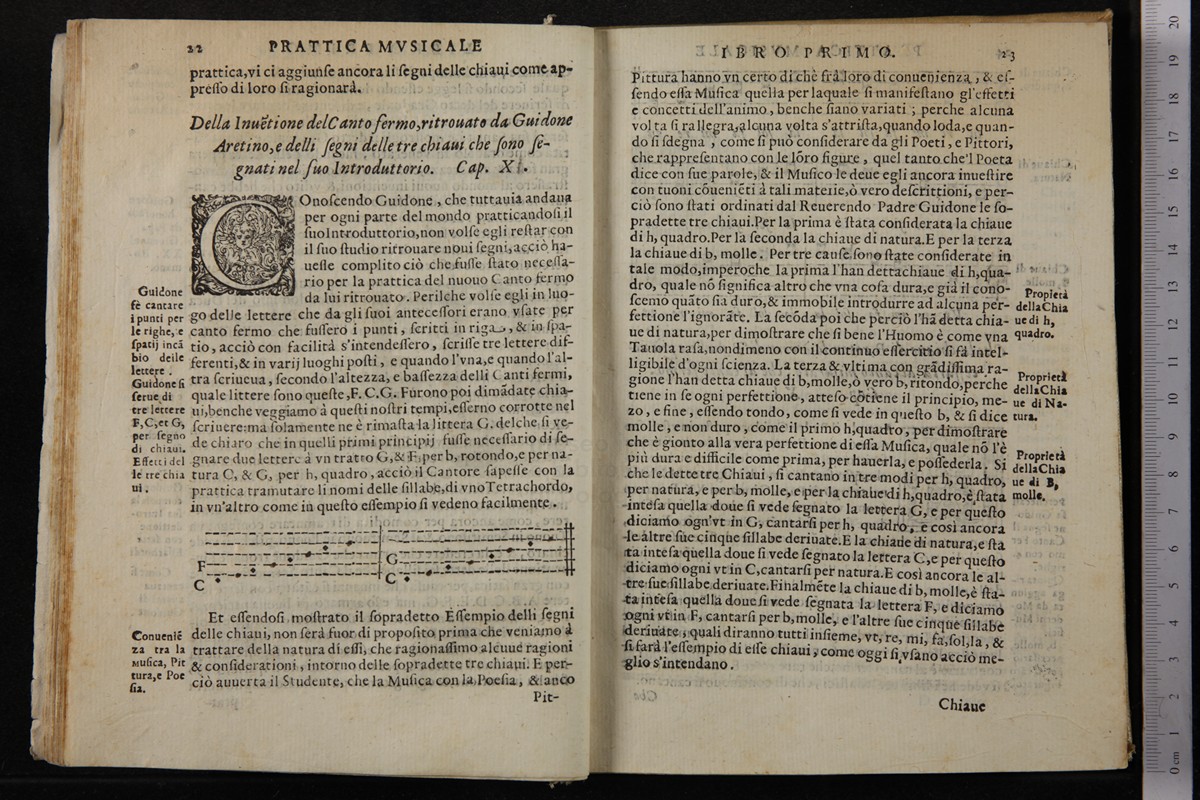 22 PRATTICA MVSICALE
prattica,vi ci aggiunſe ancora li ſegni delle chiaui come ap-
preſſo di loro ſi ragionarà.
Della Inuētione del Canto fermo,ritrouato da Guidone
Aretino,e delli ſegni delle tre chiaui che ſono ſe-
gnati nel ſuo Introduttorio. Cap. XI.
COnoſcendo Guidone, che tuttauia andaua
per ogni parte del mondo pratticandoſi il
ſuo Introduttorio,non volſe egli reſtar con
il ſuo ſtudio ritrouare noui ſegni,acciò ha-
ueſſe complito ciò che fuſſe ſtato neceſſa-
rio per la prattica del nuouo Canto fermo
da lui ritrouato. Perilche volſe egli in luo-
go delle lettere che da gli ſuoi anteceſſori erano vſate per
canto fermo che fuſſero i punti, ſcritti in riga, & in ſpa-
tio, acciò con facilità s'intendeſſero, ſcriſſe tre lettere dif-
ferenti,& in varij luoghi poſti, e quando l'vna,e quando l'al-
tra ſcriueua, ſecondo l'altezza, e baſſezza delli Canti fermi,
quale littere ſono queſte,F. C.G. Furono poi dimādate chia-
ui,benche veggiamo à queſti noſtri tempi,eſſerno corrotte nel
ſcriuere:ma ſolamente ne è rimaſta la littera G. delche ſi ve-
de chiaro che in quelli primi principij fuſſe neceſſario di ſe-
gnare due lettere à vn tratto G,& F, per b, rotondo,e per na-
tura C, & G, per h, quadro, acciò il Cantore ſapeſſe con la
prattica tramutare li nomi delle ſillabe,di vno Tetrachordo,
in vn'altro come in queſto eſſempio ſi vedeno facilmente.
Guidone
fè cantare
i punti per
le righe, e
ſpatij incā
bio delle
lettere.
Guidone ſi
ſerue di
tre lettere
F,C,et G,
per ſegno
di chiaui.
Effetti del
le tre chia
ui.
F C G C
Et eſſendoſi moſtrato il ſopradetto Eſſempio delli ſegni
delle chiaui, non ſerà fuor di propoſito prima che veniamo à
trattare della natura di eſſi, che ragionaſſimo alcune ragioni
& conſiderationi, intorno delle ſopradette tre chiaui. E per-
ciò auuerta il Studente, che la Muſica con la Poeſia, & anco
Conueniē
za tra la
Muſica, Pit
tura,e Poe
ſia.
Pit-
IBRO PRIMO. 23
Pittura hanno vn certo di chè frà loro di conuenienza, & eſ-
ſendo eſſa Muſica quella per laquale ſi manifeſtano gl'effetti
e concetti dell'animo, benche ſiano variati; perche alcuna
volta ſi rallegra,alcuna volta s'attriſta,quando loda,e quan-
do ſi ſdegna, come ſi può conſiderare da gli Poeti, e Pittori,
che rappreſentano con le lōro figure, quel tanto che'l Poeta
dice con ſue parole, & il Muſico le deue egli ancora inueſtire
con tuoni cōueniēti à tali materie,ò vero deſcrittioni, e per-
ciò ſono ſtati ordinati dal Reuerendo Padre Guidone le ſo-
pradette tre chiaui.Per la prima è ſtata conſiderata la chiaue
di h, quadro.Per la ſeconda la chiaue di natura.E per la terza
la chiaue di b, molle. Per tre cauſe ſono ſtate conſiderate in
tale modo,imperoche la prima l'han detta chiaue di h,qua-
dro, quale nō ſignifica altro che vna coſa dura,e già il cono-
ſcemo quāto ſia duro,& immobile introdurre ad alcuna per-
fettione l'ignorāte. La ſecōda poi che perciò l'hā detta chia-
ue di natura,per dimoſtrare che ſi bene l'Huomo è come vna
Tauola raſa,nondimeno con il continuo eſſercitio ſi fà intel-
ligibile d'ogni ſcienza. La terza & vltima con grādiſſima ra-
gione l'han detta chiaue di b,molle,ò vero b, ritondo,perche
tiene in ſe ogni perfettione, atteſo cōtiene il principio, me-
zo, e fine, eſſendo tondo, come ſi vede in queſto b, & ſi dice
molle, e non duro, come il primo h,quadro, per dimoſtrare
che è gionto alla vera perfettione di eſſa Muſica, quale nō l'è
più dura e difficile come prima, per hauerla, e poſſederla. Si
che le dette tre Chiaui, ſi cantano in tre modi per h, quadro,
per natura, e per b, molle, e per la chiaue di h,quadro,è ſtata
inteſa quella doue ſi vede ſegnato la lettera G, e per queſto
diciamo ogn'vt in G, cantarſi per h, quadro, e così ancora
le altre ſue cinque ſillabe deriuate.E la chiaue di natura,e ſta
ta inteſa quella doue ſi vede ſegnato la lettera C,e per queſto
diciamo ogni vt in C,cantarſi per natura.E così ancora le al-
tre ſue ſillabe deriuate.Finalmēte la chiaue di b, molle,è ſta-
ta inteſa quella doue ſi vede ſegnata la lettera F, e diciamo
ogni vt in F, cantarſi per b,molle, e l'altre ſue cinque ſillabe
deriuate, quali diranno tutti inſieme, vt, re, mi, fa, ſol, la, &
ſi farà l'eſſempio di eſſe chiaui, come oggi ſi vſano acciò me-
glio s'intendano.
Propietà
della Chia
ue di h,
quadro.
Proprietà
della Chia
ue di Na-
tura.
Proprietà
della Chia
ue di B,
molle.
Chiaue
0 cm 1 2 3 4 5 6 7 8 9 10 11 12 13 14 15 16 17 18 19 20